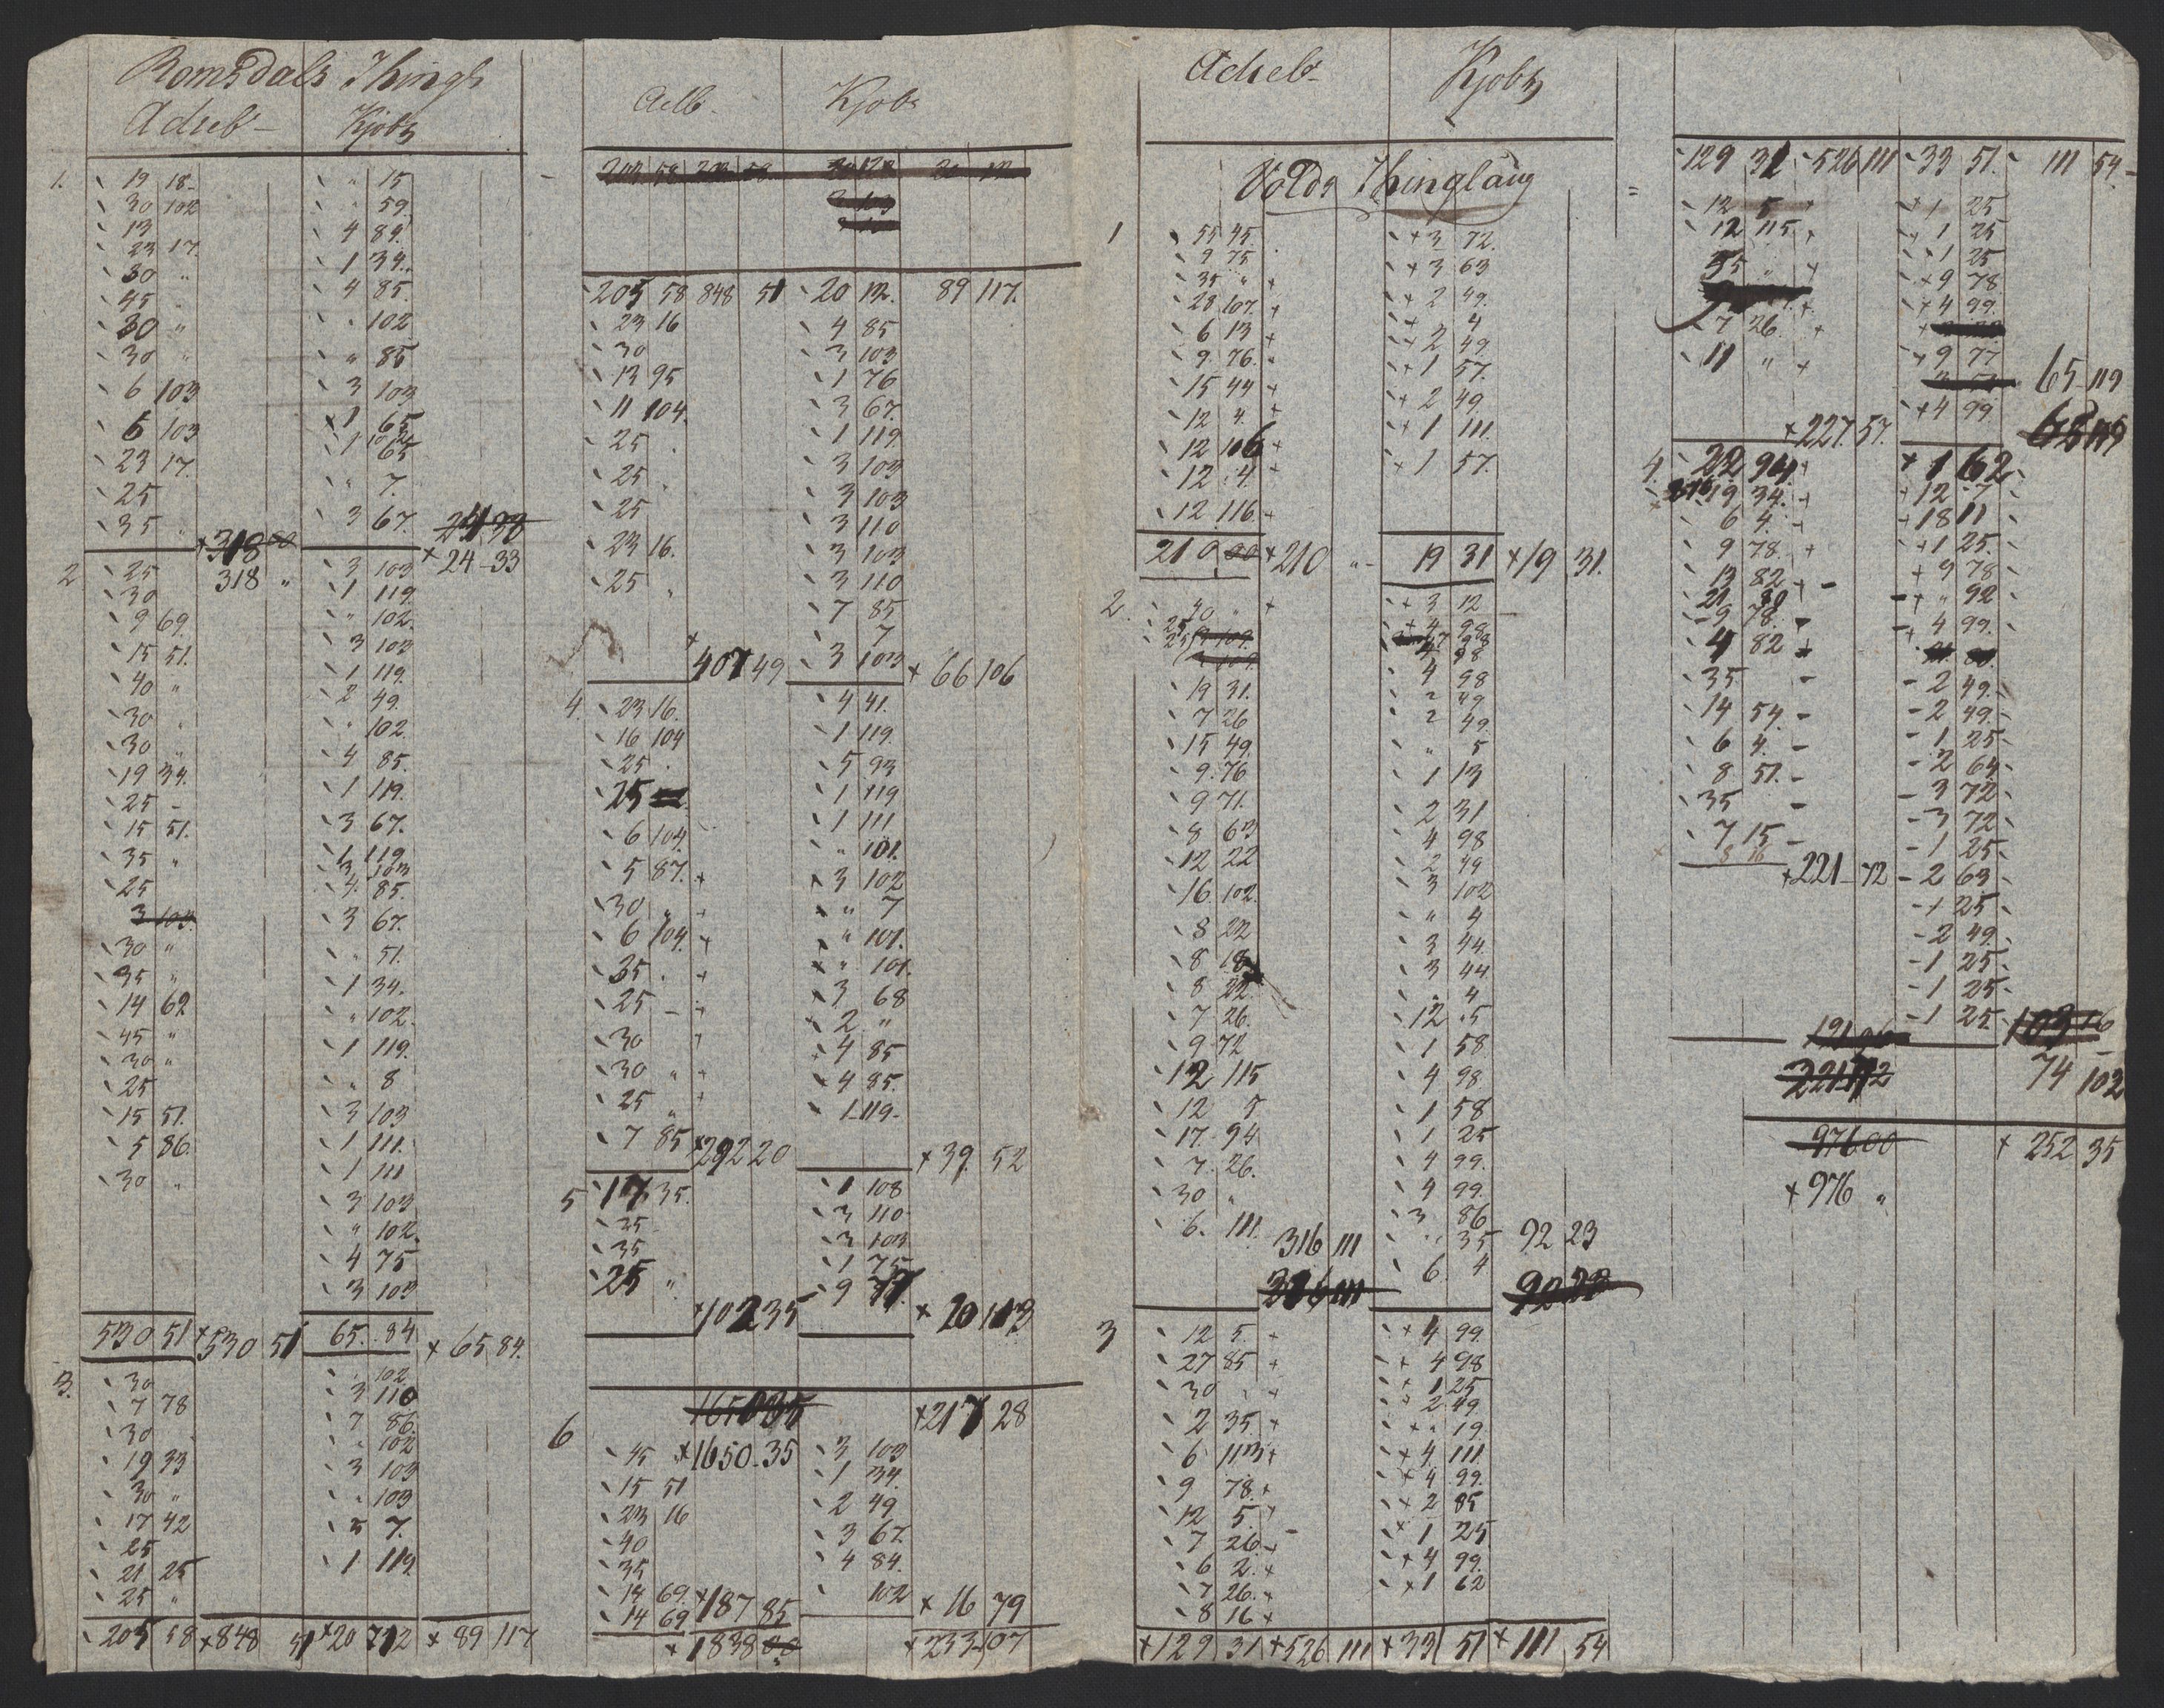 Romsdals Thingl
Adseb- Kjobs
1. 19 18- " 15
30 102 " 59
13 4 89.
23 17. 1 34.
30 " 4 85.
45 " " 102
30 " " 85
30 " 3 103
6 103 1 65
6 103 1 65
23 17. " 7.
25 3 67.
35 "
318 " 24-33
2 25 3 103
30 1 119.
9 69. " 102.
15 51. 3 103
40 " 1 119.
30 2 49.
30 " 102.
19 34. 4 85.
25 - 1 119.
15 51. 3 67.
35 " 1 119
25 3 103
3 104. 4 85.
30 " 3 67.
35 " " 51.
14 62 1 34.
45 " " 102.
30 " 1 119.
25 " 8
15 51. 3 103
5 86. 1 111.
30 " 1 111
3 103
" 102.
4 75
3 103
530 51 +530 51 65. 84 +65 84.
3. 30 " 102
7 78 3 110
30 7 86.
19 33 " 102
30 " 3 103
17 42 " 103
25 5 7.
21 25 1 119
25 "
205 58 +848 51 +20 712 +89 117
Aelb. Kjobs
205 58 848 51 20 12. 89 117.
23 16 4 85
30 3 103
13 95 1 76
11 104. 3 67.
25 1 119.
25 3 103
25 3 103
23 16. 3 110
25 3 103
3 110
7 85
7
+407 49 3 103 +66 106
4. 23 16. 4 41.
16 104 1 119.
25 5 93
25 1 119
6 104. 1 111
5 87. " 101.
30 " 3 102
6 104. " 7
35 " 101.
25 - " 101.
30 3 68
30 " 2 "
25 " 4 85
7 85 4 85.
1-119-
+292 20 +39. 52
5 17 35. 1 108
25 3 110
35 3 103
25 " 1 75
9 77.
+102 35 +20 113
165035 +217 28
6 45 +1650-35 3 103
15 51 1 34.
23 16 2 49
40 3 67.
35 4 84.
14 69. +187 85 102 +16 79
14 69
+1838 +233 107
Adseb- Kjobs
Volds Thinglaug
1 55 45. +3 72.
9 75 +3 63
35 " +2 49.
28 107. +4
6 13 +2 49
9 76. +1 57.
15 44 +2 49.
12 4. +1 111.
12 106 +1 57.
12 4.
12 116
210 00 +210 "- 19 31 +19 31.
2. 40 " +3 12
25 +4 98
25
19 31. 4 98
7 26 2 49
15 49. 2 49.
9. 76 " 5
9 71. 1 13
8 63 2 31
12 22 4 98
16 102. 2 49
8 22 3 102
8 18 " 4
8 22. 3 44
7 26. 3 44
9 72 4
12 115 12 5
12 5 1 58
17. 94 4 98.
7. 26. 1 58
30 " 1 25
6. 111. 4 99.
4 99.
3 86
316 111 " 35 92 23
6. 4
3 12 5. +4 99.
27 85 +4 98
30 +1 25
2 35. 2 49
6 113 " 19.
9 78. +4 111
12 5. +4 99.
7 26 +2 85
6 2. +1 25
7 26. +4 99.
8 16 +1 62
+129 31 +526 111 +33 51 +111 54
129 31 526 111 33 51. 111 54.
12 5 +1 25
12 115 +1 25
35 " 1 25
7 26. +9 78
11 " +4 99.
+9 77
+4 99. 65-119
+227 57.
4. 22 94 +1 62
19 34. 12 7
6 4. 18 11
9 78. +1 25.
13 82 +9 78
21 30 " 92
9 78. 4 99.
4 82 -2 49.
35 -2 49.
14 54 -1 25
6 4. -2 64
8 51. -3 72
35 -3 72
7 15 -1 25
8 16 -2 63
+221-72 -1 25
-2 49
-1 25
-1 25
-1 25
191 96 103 16
221 72 74 102
97600 +252 35
+976 "